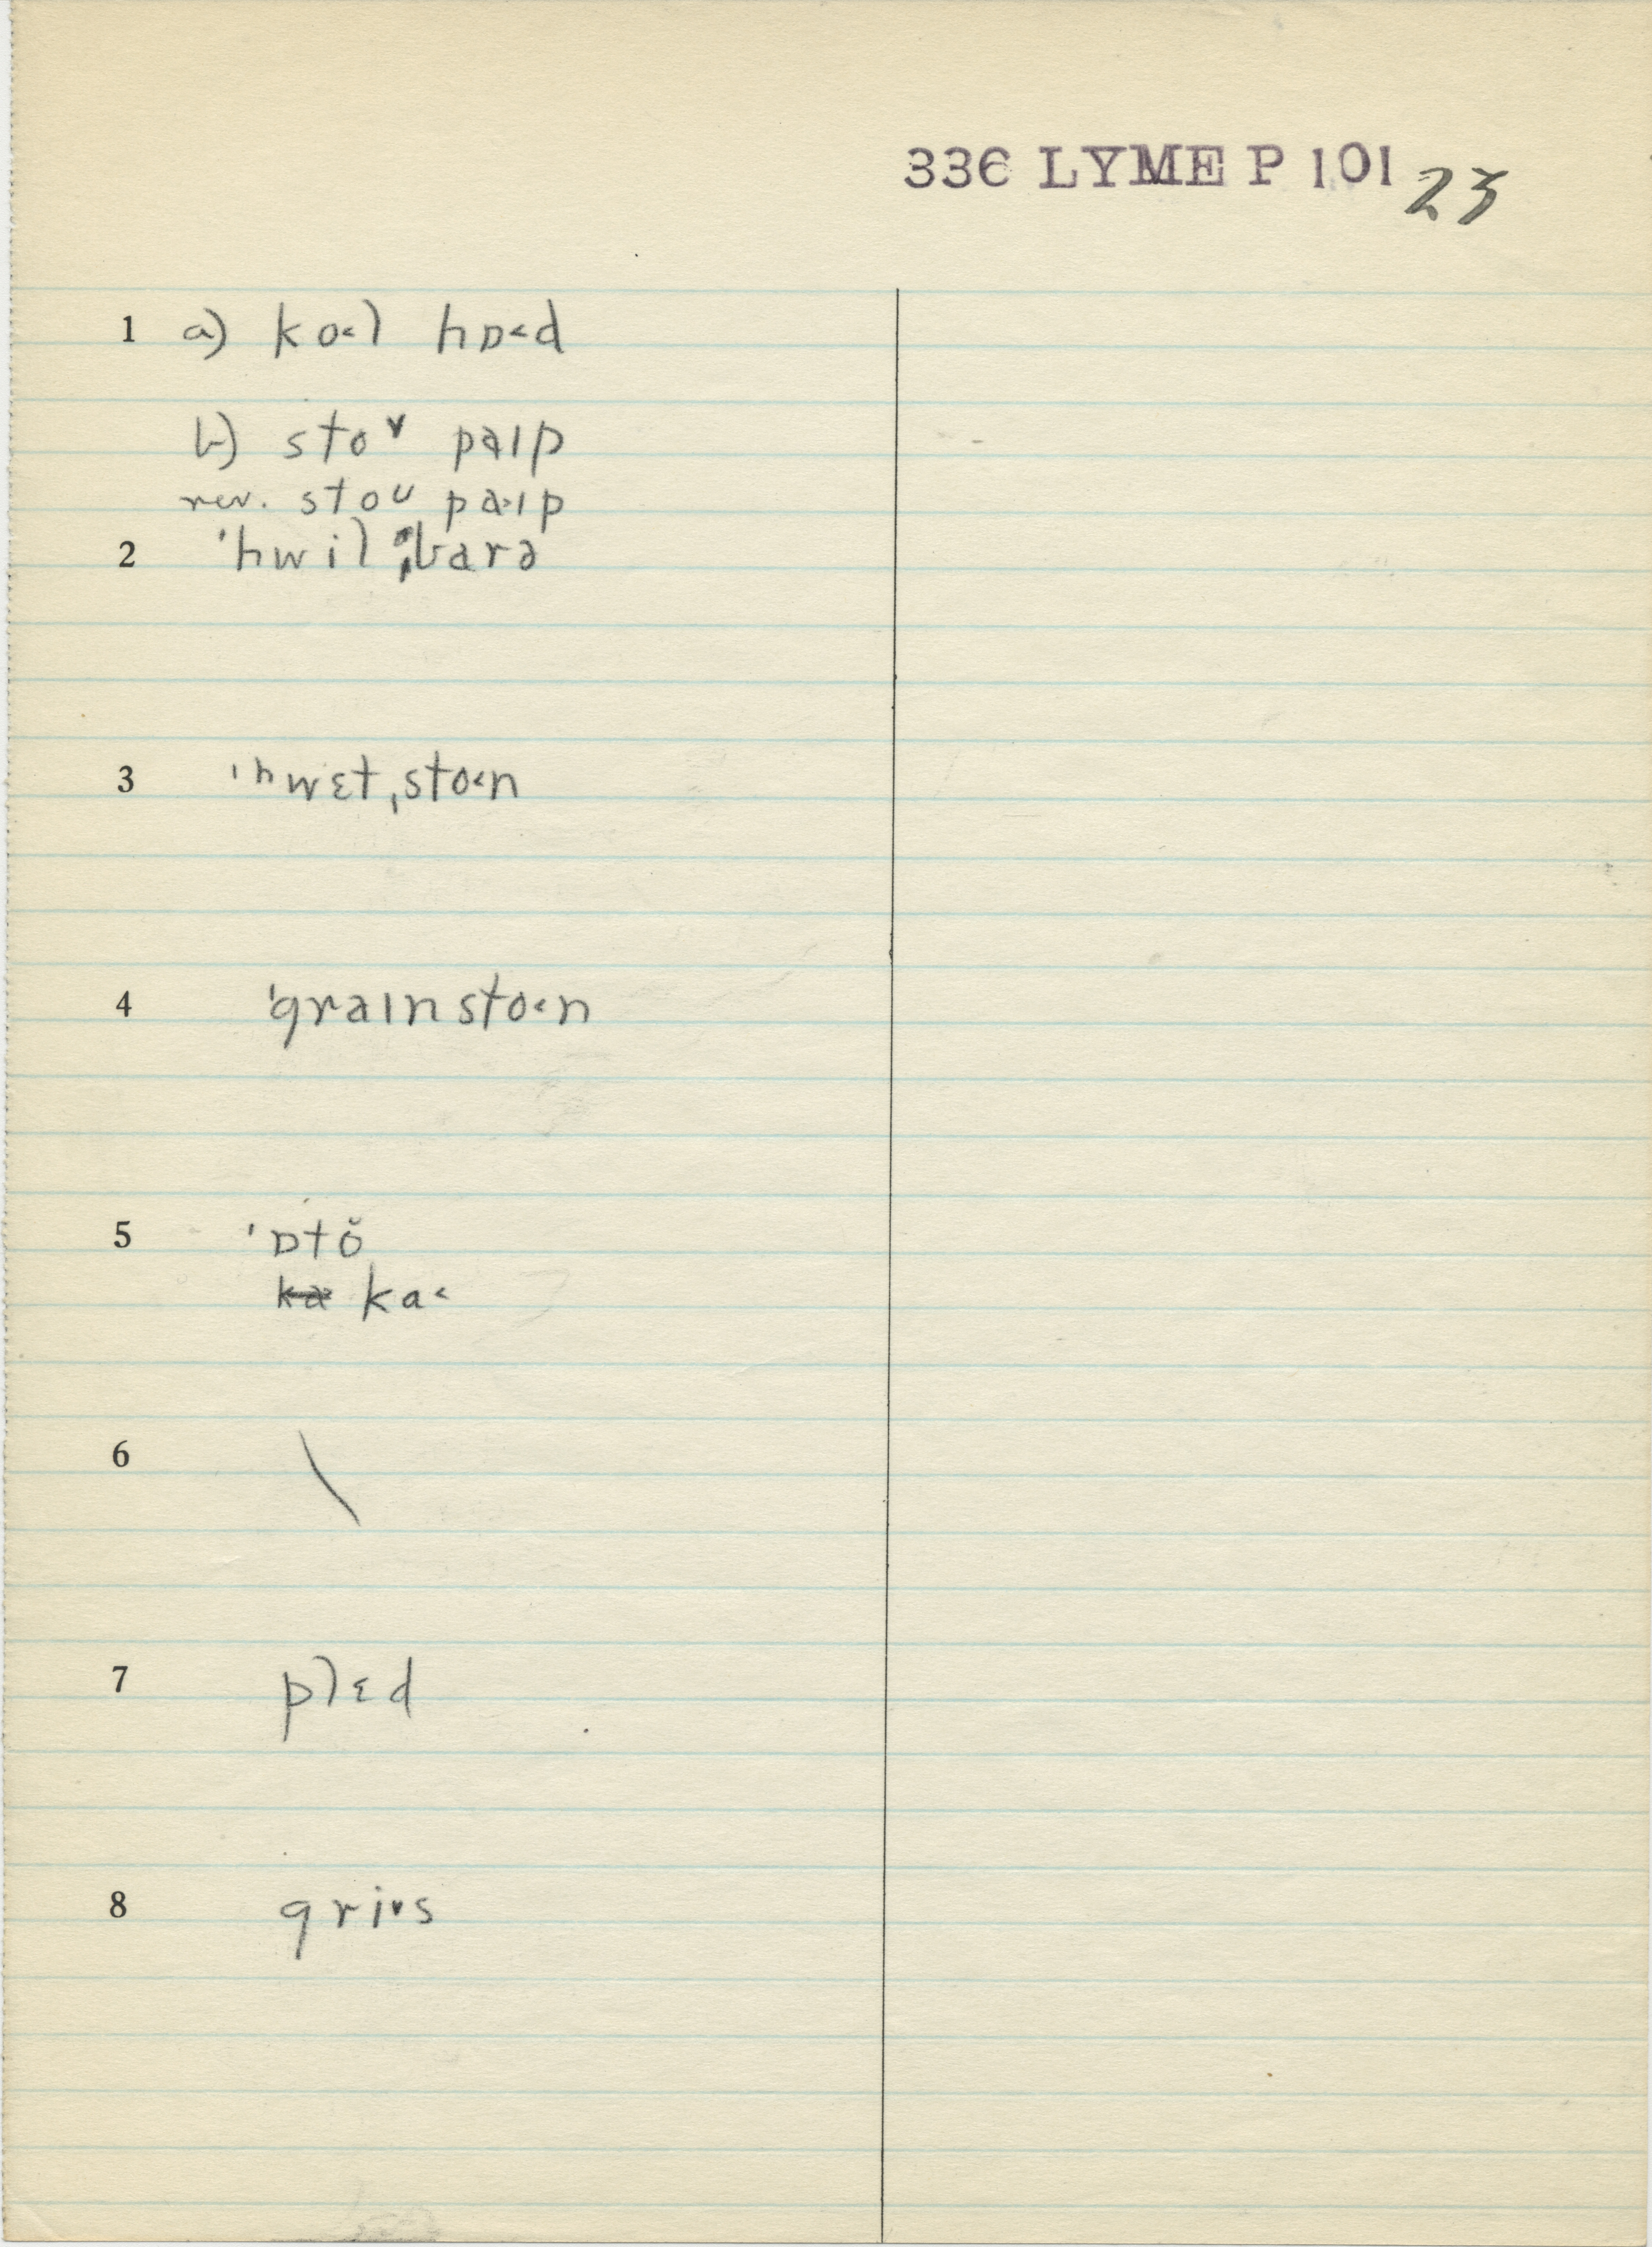 336 LYME P 101 23
1 a) ko˂l hɒ˂d
b) sto˅ paɪp
rev. stoᴜ pa˃ɪp
2 ˈhwilˌbarə
3 ˈʰwɛtˌsto˂n
4 ˈgraɪnsto˂n
5 ˈɒtŏ
ka ka˂
6 \
7 plɛd
8 gri˅s